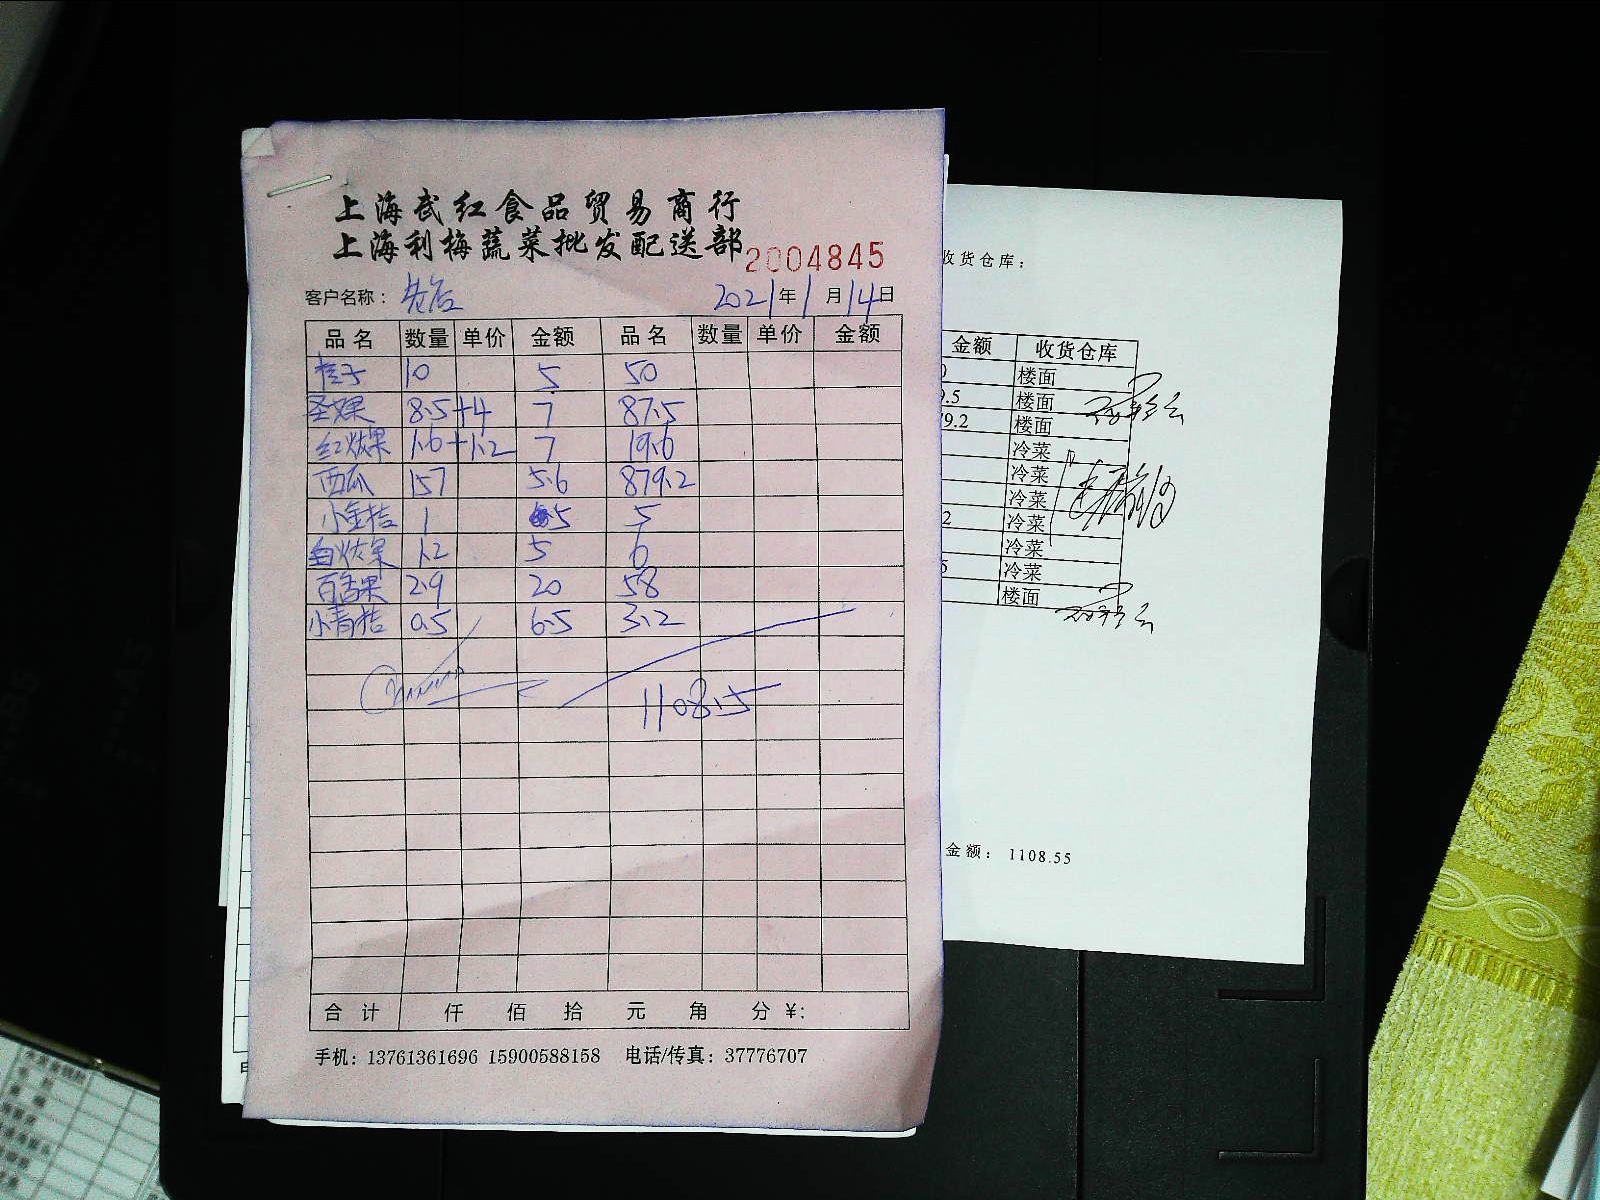 上海武红食品贸易商行
上海利梅蔬菜批发配送部
2004845
客户名称： 2021年1月14日
品名 数量 单价 金额 品名 数量 单价 金额
桔子 10 5 50
圣女果 8.5+4 7 87.5
红火龙果 1.6+1.2 7 19.6
西瓜 157 5.6 879.2
小金桔 1 5 5
白火龙果 1.2 5 6
百香果 2.9 20 58
小青桔 0.5 6.5 3.2
1108.5
合计 仟 佰 拾 元 角 分 ¥:
手机：13761361696 15900588158 电话/传真：37776707
收货仓库：
金额 收货仓库
楼面
.5 楼面
79.2 楼面
冷菜
冷菜
冷菜
2 冷菜
冷菜
5 冷菜
楼面
金额： 1108.55